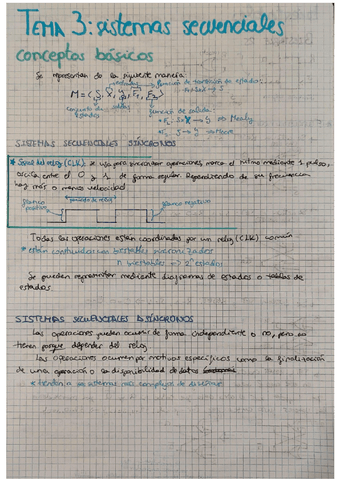 TEMA 3: sistemas secuenciales
conceptos básicos
Se representan de la siguiente manera:
entradas función de transición de estados:
M = <S, X, Y, F₁, F₂>
conjunto de estados
salidas
función de salida:
→ Mealy
S → Y → Moore
SISTEMAS SECUENCIALES SÍNCRONOS
* Señal del reloj (CLK): se usa para sincronizar operaciones, marca el ritmo mediante 1 pulso,
oscila entre el 0 y 1 de forma regular. Dependiendo de su frecuencia
hay más o menos velocidad
flanco positivo
periodo de reloj
flanco negativo
Todas las operaciones están coordinadas por un reloj (CLK) común
* están contruidos con biestables sincronizados
n biestables → 2ⁿ estados
Se pueden representar mediante diagramas de estados o tablas de
estados.
SISTEMAS SECUENCIALES ASÍNCRONOS
Las operaciones pueden ocurrir de forma independiente o no, pero no
tienen porque depender del reloj
Las operaciones ocurren por motivos específicos como la finalización
de una operación o la disponibilidad de datos
* tienden a ser sistemas más complejos de diseñar